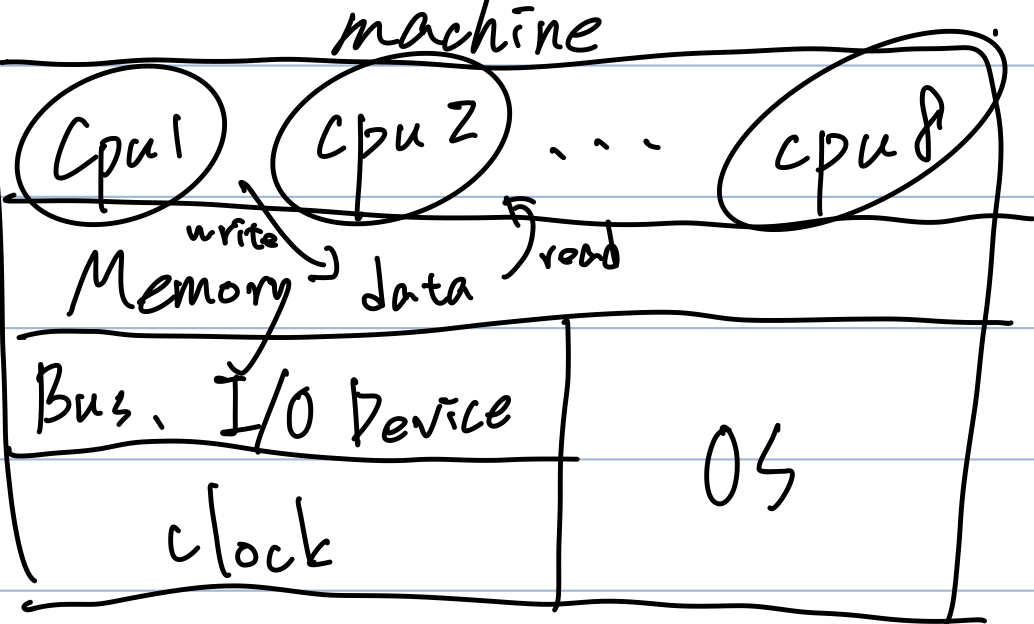 machine
Cpu1 cpu2 ... cpu8
write read
Memory data
Bus、I/O Device
OS
clock